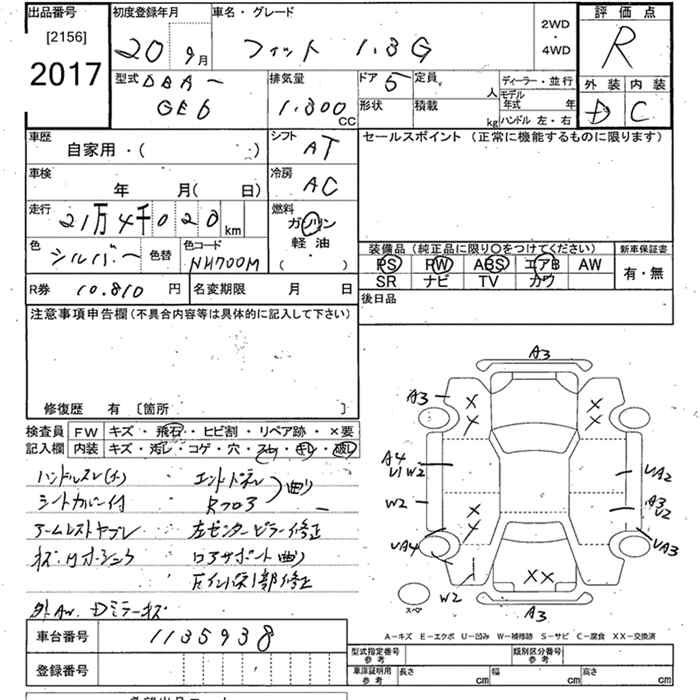 出品番号 初度登録年月 車名・グレード 2WD・4WD 評価点
[2156]
2017
20 9月 フィット 1.3G R
型式 DBA- GE6 排気量 1.300 CC ドア 5 定員 人 ディーラー・並行
形状 積載 kg モデル年式 年 ハンドル 左・右
外装 内装
D C
車歴 自家用・( ) シフト AT セールスポイント (正常に機能するものに限ります)
車検 年 月( 日) 冷房 AC
走行 21万4千020 km 燃料 ガソリン 軽油 ( ・ )
色 シルバー 色替 色コード NH700M
装備品 (純正品に限り〇をつけてください) 新車保証書
PS PW ABS エアB AW 有・無
SR ナビ TV カワ
R券 10.810 円 名変期限 月 日
後日品
注意事項申告欄 (不具合内容等は具体的に記入して下さい)
修復歴 有 [箇所 ]
検査員 FW キズ・飛石・ヒビ割・リペア跡・×要
記入欄 内装 キズ・汚レ・コゲ・穴・スレ・
ハンドルスレ
シートカバー付 Rフロア 曲り
アームレストヤブレ 左センターピラー修正
曲り
修正
外AW.Dミラーキズ
車台番号 1135938
登録番号
A3
A3
A4
U1 W2
W2
UA4
W2
UA2
A3
U2
UA3
A3
スペア
A−キズ E−エクボ U−凹み W−補修跡 S−サビ C−腐食 XX−交換済
型式指定番号 参考 類別区分番号 参考
車庫証明用 参考 長さ cm 幅 cm 高さ cm